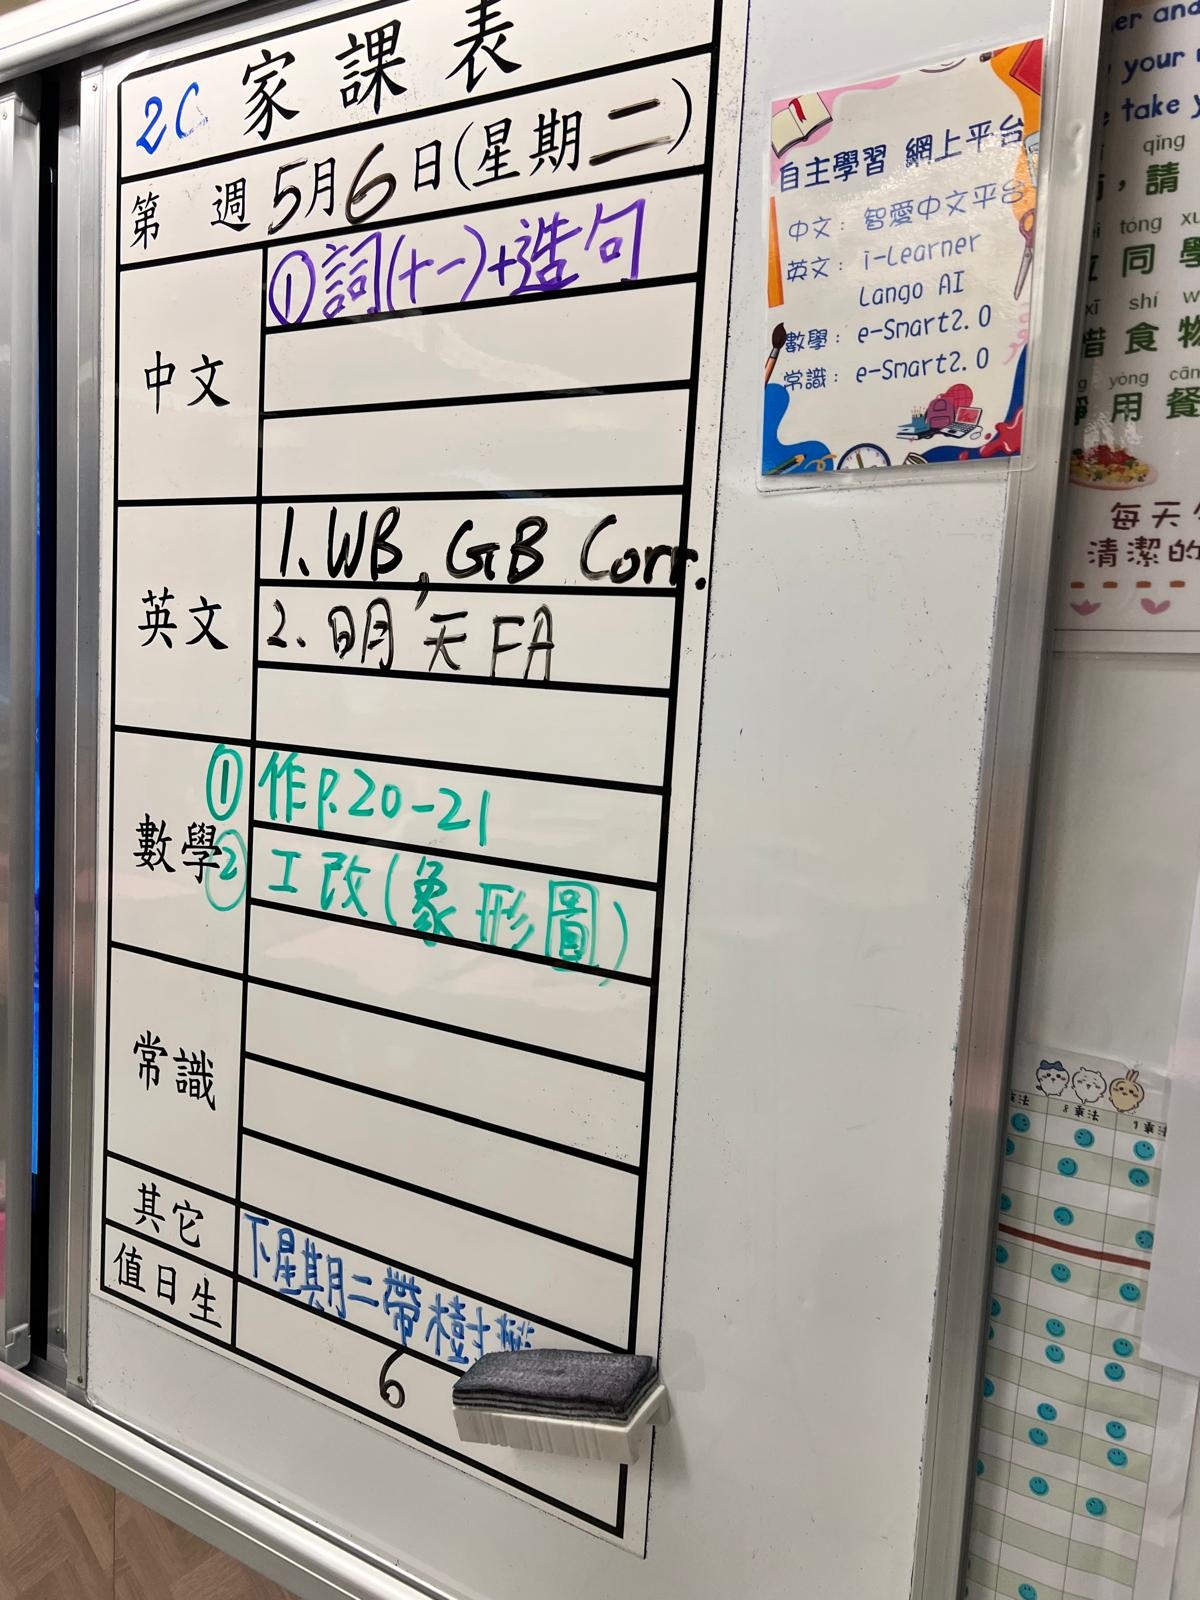 2C 家課表
第 週 5月6日(星期二)
中文
①詞(十一)+造句
英文
1. WB, GB Corr.
2. 明天FA
數學
① 作P.20-21
② 工改(象形圖)
常識
其它
下星期二帶樹
值日生
6
自主學習 網上平台
中文：智愛中文平台
英文：i-Learner
Lango AI
數學：e-Smart2.0
常識：e-Smart2.0
and
your
take
qīng
，請
tóng
同學
xī shí
惜食物
yòng cān
用餐
每天
清潔的
乘法
8乘法